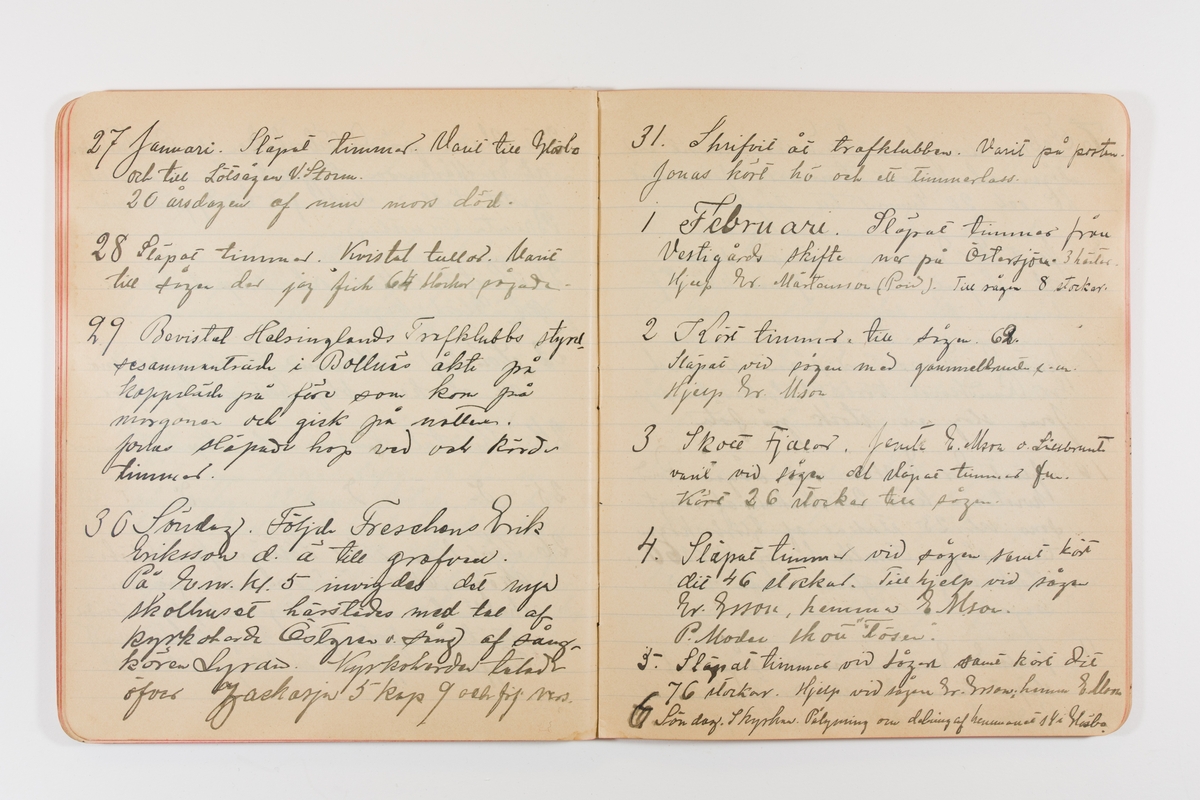 27 Januari. Släpat timmer. Varit till Glösbo
och till Lötsågen V. Storm.
20 årsdagen af min mors död.
28 Släpat timmer. Kvistat tallar. Varit
till sågen der jag fick 64 stockar sågade.
29 Bevistat Helsinglands Trafklubbs styrel-
sesammanträde i Bollnäs åkte på
kappsläde på före som kom på
morgonen och gick på natten.
Jonas släpade hop ved och körde
timmer.
30 Söndag. Följde Treschens Erik
Eriksson d. ä till grafven.
På E.m. Kl. 5 invigdes det nya
skolhuset härstädes med tal af
kyrkoherde Östgren o. sång af sång-
kören Lyran. Kyrkoherden talade
öfver Zackarja 5 kap 9 och följ. vers.
31. Skrifvit åt trafklubben. Varit på posten.
Jonas kört hö och ett timmerlass.
1 Februari. Släpat timmer från
Vestigårds skifte ner på Östersjön. 3 hästar.
Hjelp Er. Mårtensson (Poid). Till sågen 8 stockar.
2 Kört timmer till sågen. 62.
Släpat vid sågen med gammelbrunte e.m.
Hjelp Er. Mson
3 Skott Fjäror. Jemte E. Mson o. Lillbrunte
varit vid sågen det släpat timmer f.m.
Kört 26 stockar till sågen.
4. Släpat timmer vid sågen samt kört
dit 46 stockar. Till hjelp vid sågen
Er. Ersson, hemma E. Mson.
P. Modin skott "Tösen".
5. Släpat timmer vid sågen samt kört dit
76 stockar. Hjelp vid sågen Er. Ersson; hemma E Mson
6 Söndag. I kyrkan. Pålysning om delning af hemmanet i Glösbo.